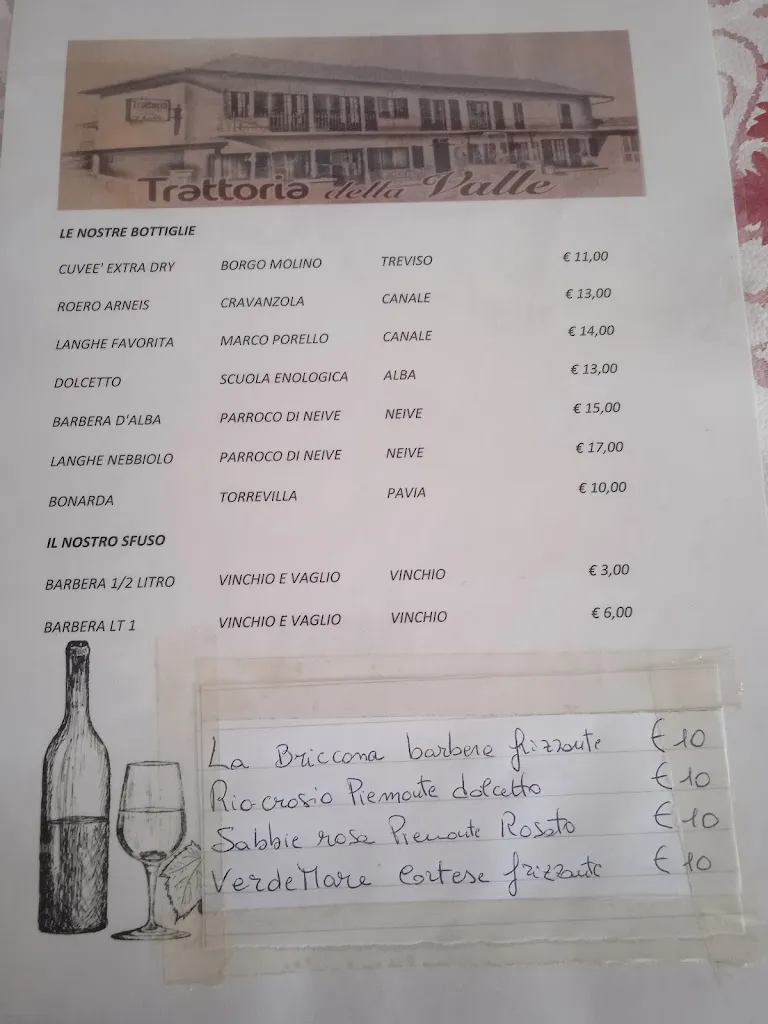 Trattoria della Valle
LE NOSTRE BOTTIGLIE
CUVEE' EXTRA DRY BORGO MOLINO TREVISO € 11,00
ROERO ARNEIS CRAVANZOLA CANALE € 13,00
LANGHE FAVORITA MARCO PORELLO CANALE € 14,00
DOLCETTO SCUOLA ENOLOGICA ALBA € 13,00
BARBERA D'ALBA PARROCO DI NEIVE NEIVE € 15,00
LANGHE NEBBIOLO PARROCO DI NEIVE NEIVE € 17,00
BONARDA TORREVILLA PAVIA € 10,00
IL NOSTRO SFUSO
BARBERA 1/2 LITRO VINCHIO E VAGLIO VINCHIO € 3,00
BARBERA LT 1 VINCHIO E VAGLIO VINCHIO € 6,00
La Briccona barbera frizzante € 10
Rio crosio Piemonte dolcetto € 10
Sabbie rosa Piemonte Rosato € 10
VerdeMare Cortese frizzante € 10